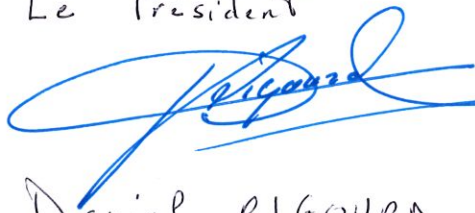 Le President
Rigaurd
Daniel RIGOURD